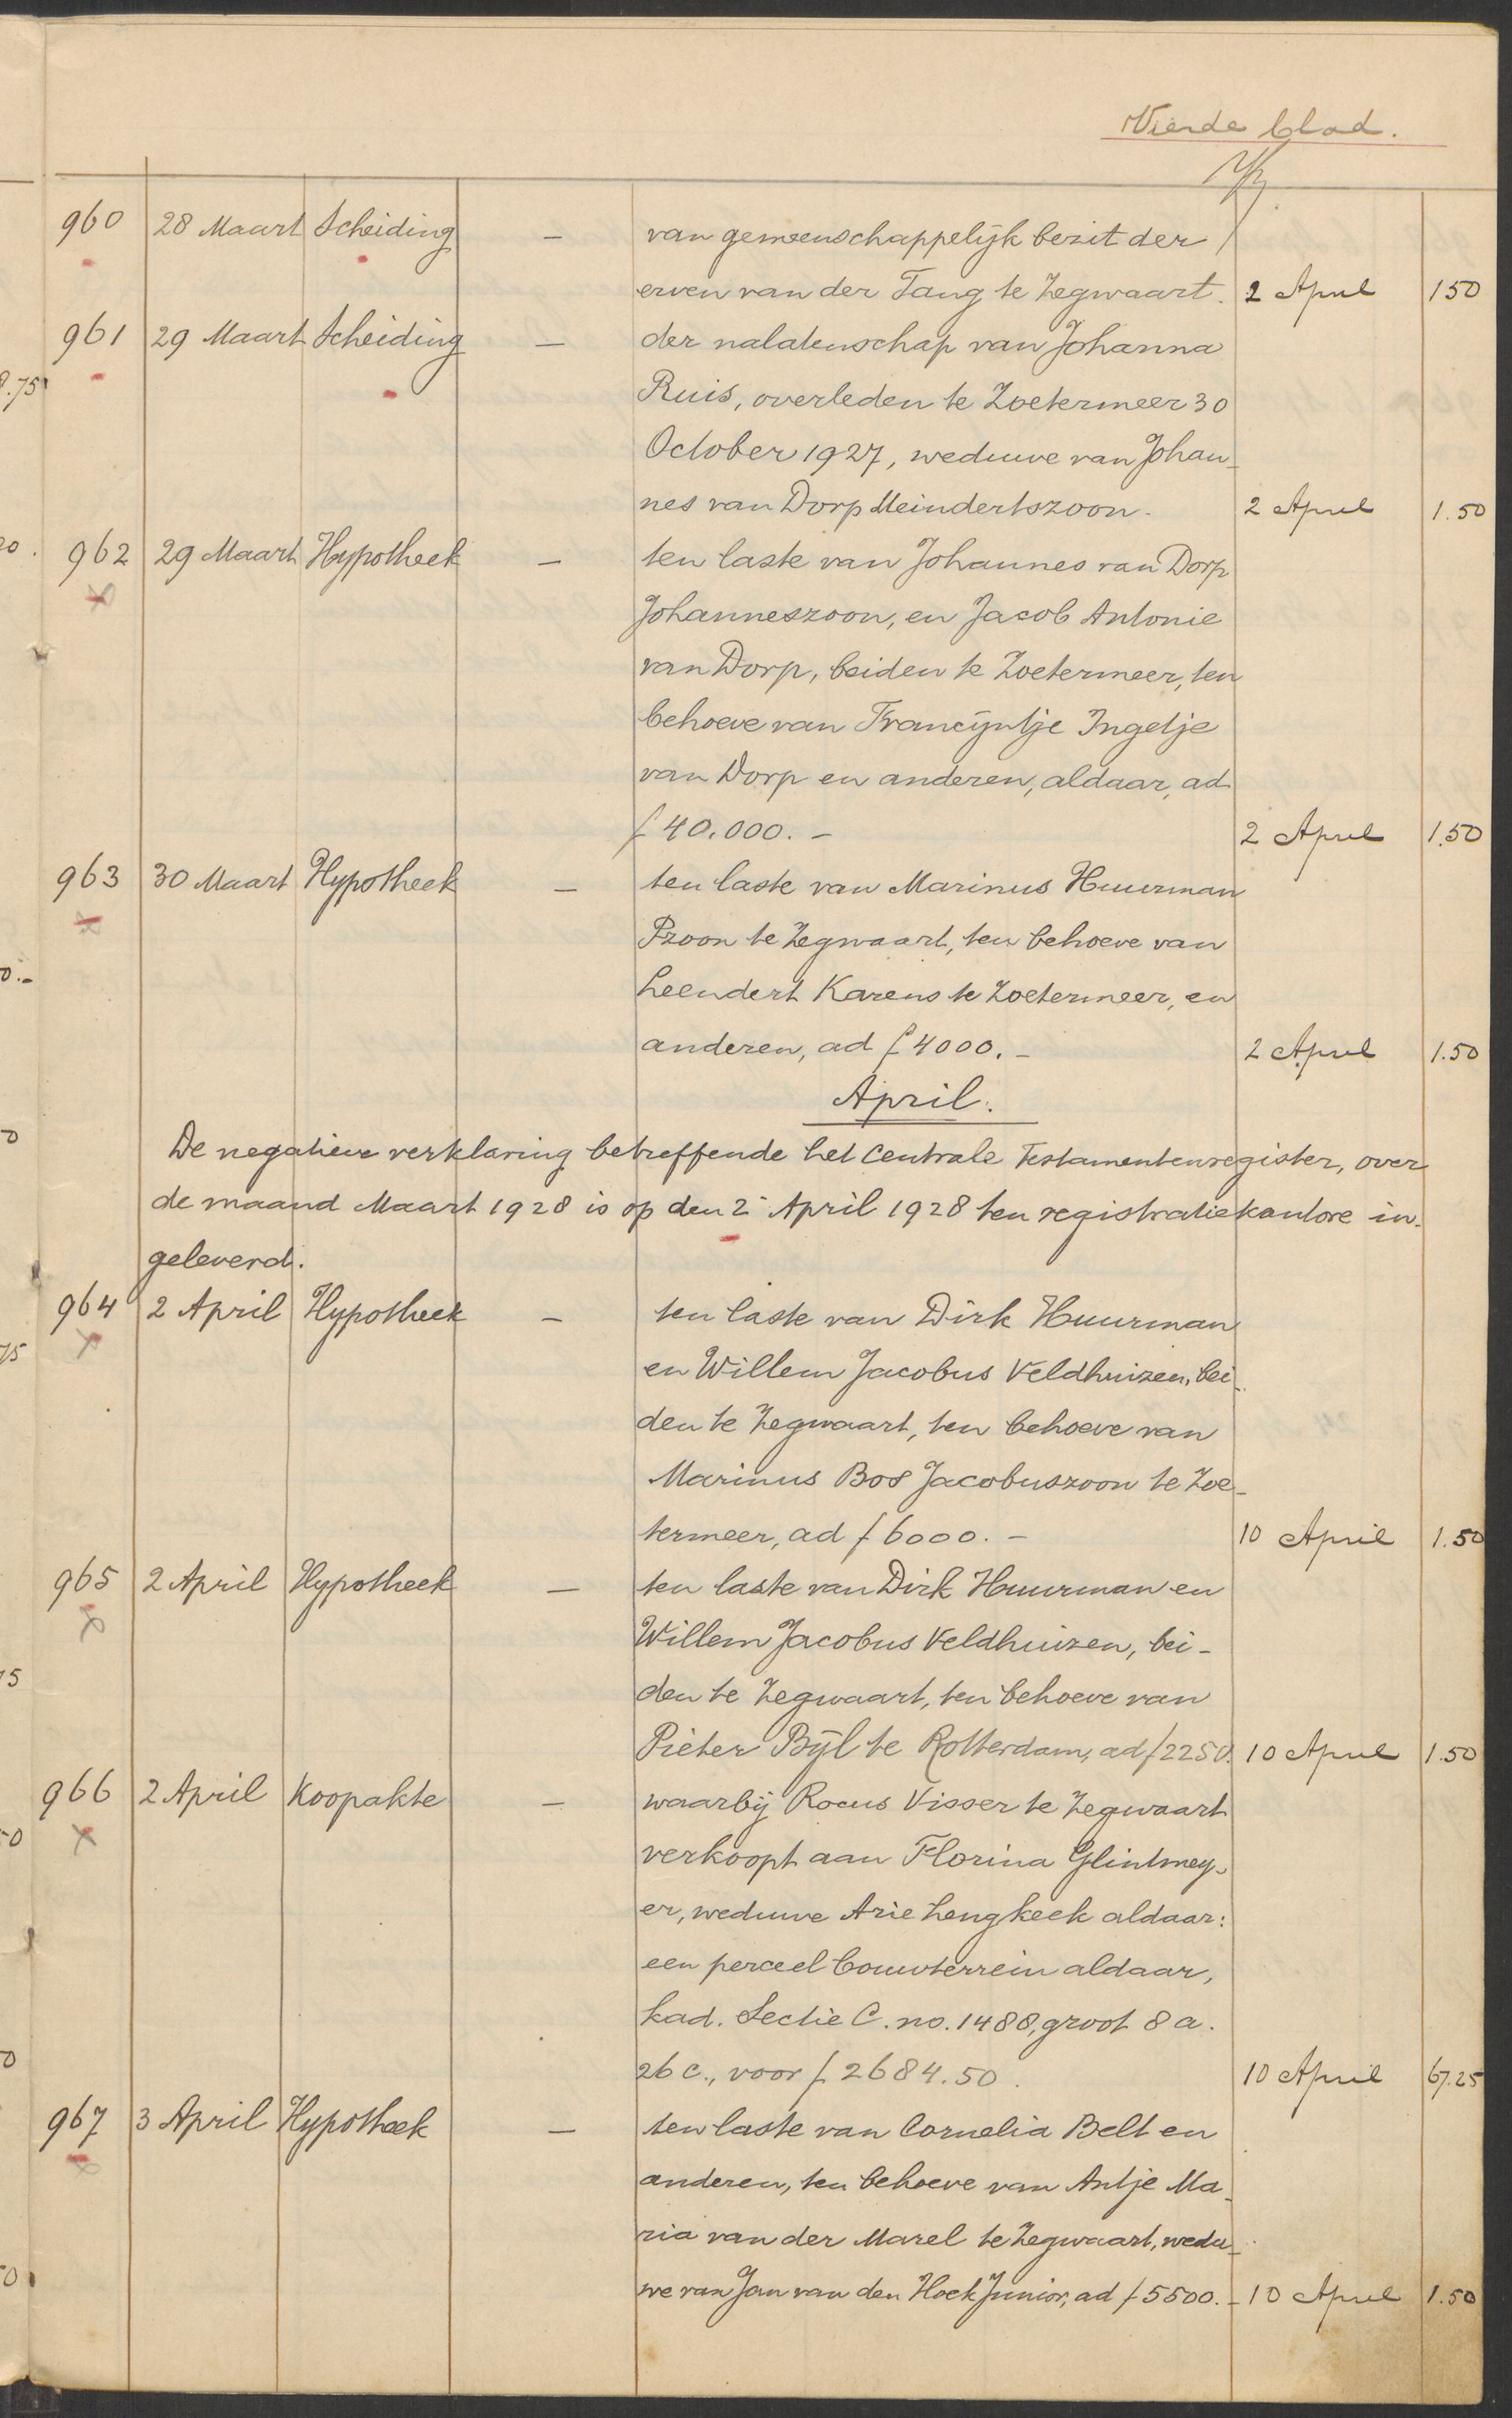 Vierde blad.
960 28 Maart Scheiding — van gemeenschappelijk bezit der
erven van der Tang te Zegwaart. 2 April 150
961 29 Maart Scheiding — der nalatenschap van Johanna
Ruis, overleden te Zoetermeer 30
October 1927, weduwe van Johan-
nes van Dorp Meindertszoon. 2 April 1.50
962 29 Maart Hypotheek — ten laste van Johannes van Dorp
Johanneszoon, en Jacob Antonie
van Dorp, beiden te Zoetermeer, ten
behoeve van Francijntje Ingetje
van Dorp en anderen, aldaar, ad
f 40.000.- 2 April 1.50
963 30 Maart Hypotheek — ten laste van Marinus Huurman
Pzoon te Zegwaart, ten behoeve van
Leendert Karens te Zoetermeer, en
anderen, ad f 4000.- 2 April 1.50
April.
De negatieve verklaring betreffende het Centrale Testamentenregister, over
de maand Maart 1928 is op den 2 April 1928 ten registratiekantore in-
geleverd.
964 2 April Hypotheek — ten laste van Dirk Huurman
en Willem Jacobus Veldhuizen, bei-
den te Zegwaart, ten behoeve van
Marinus Bos Jacobuszoon te Zoe-
termeer, ad f 6000.- 10 April 1.50
965 2 April Hypotheek — ten laste van Dirk Huurman en
Willem Jacobus Veldhuizen, bei-
den te Zegwaart, ten behoeve van
Pieter Bijl te Rotterdam, ad f 2250. 10 April 1.50
966 2 April Koopakte — waarbij Rocus Visser te Zegwaart
verkoopt aan Florina Glintmey-
er, weduwe Arie Lengkeek aldaar:
een perceel bouwterrein aldaar,
kad. Sectie C. no. 1488, groot 8 a.
26 c., voor f 2684.50. 10 April 67.25
967 3 April Hypotheek — ten laste van Cornelia Belt en
anderen, ten behoeve van Antje Ma-
ria van der Marel te Zegwaart, wedu-
we van Jan van den Hoek Junior, ad f 5500.- 10 April 1.50